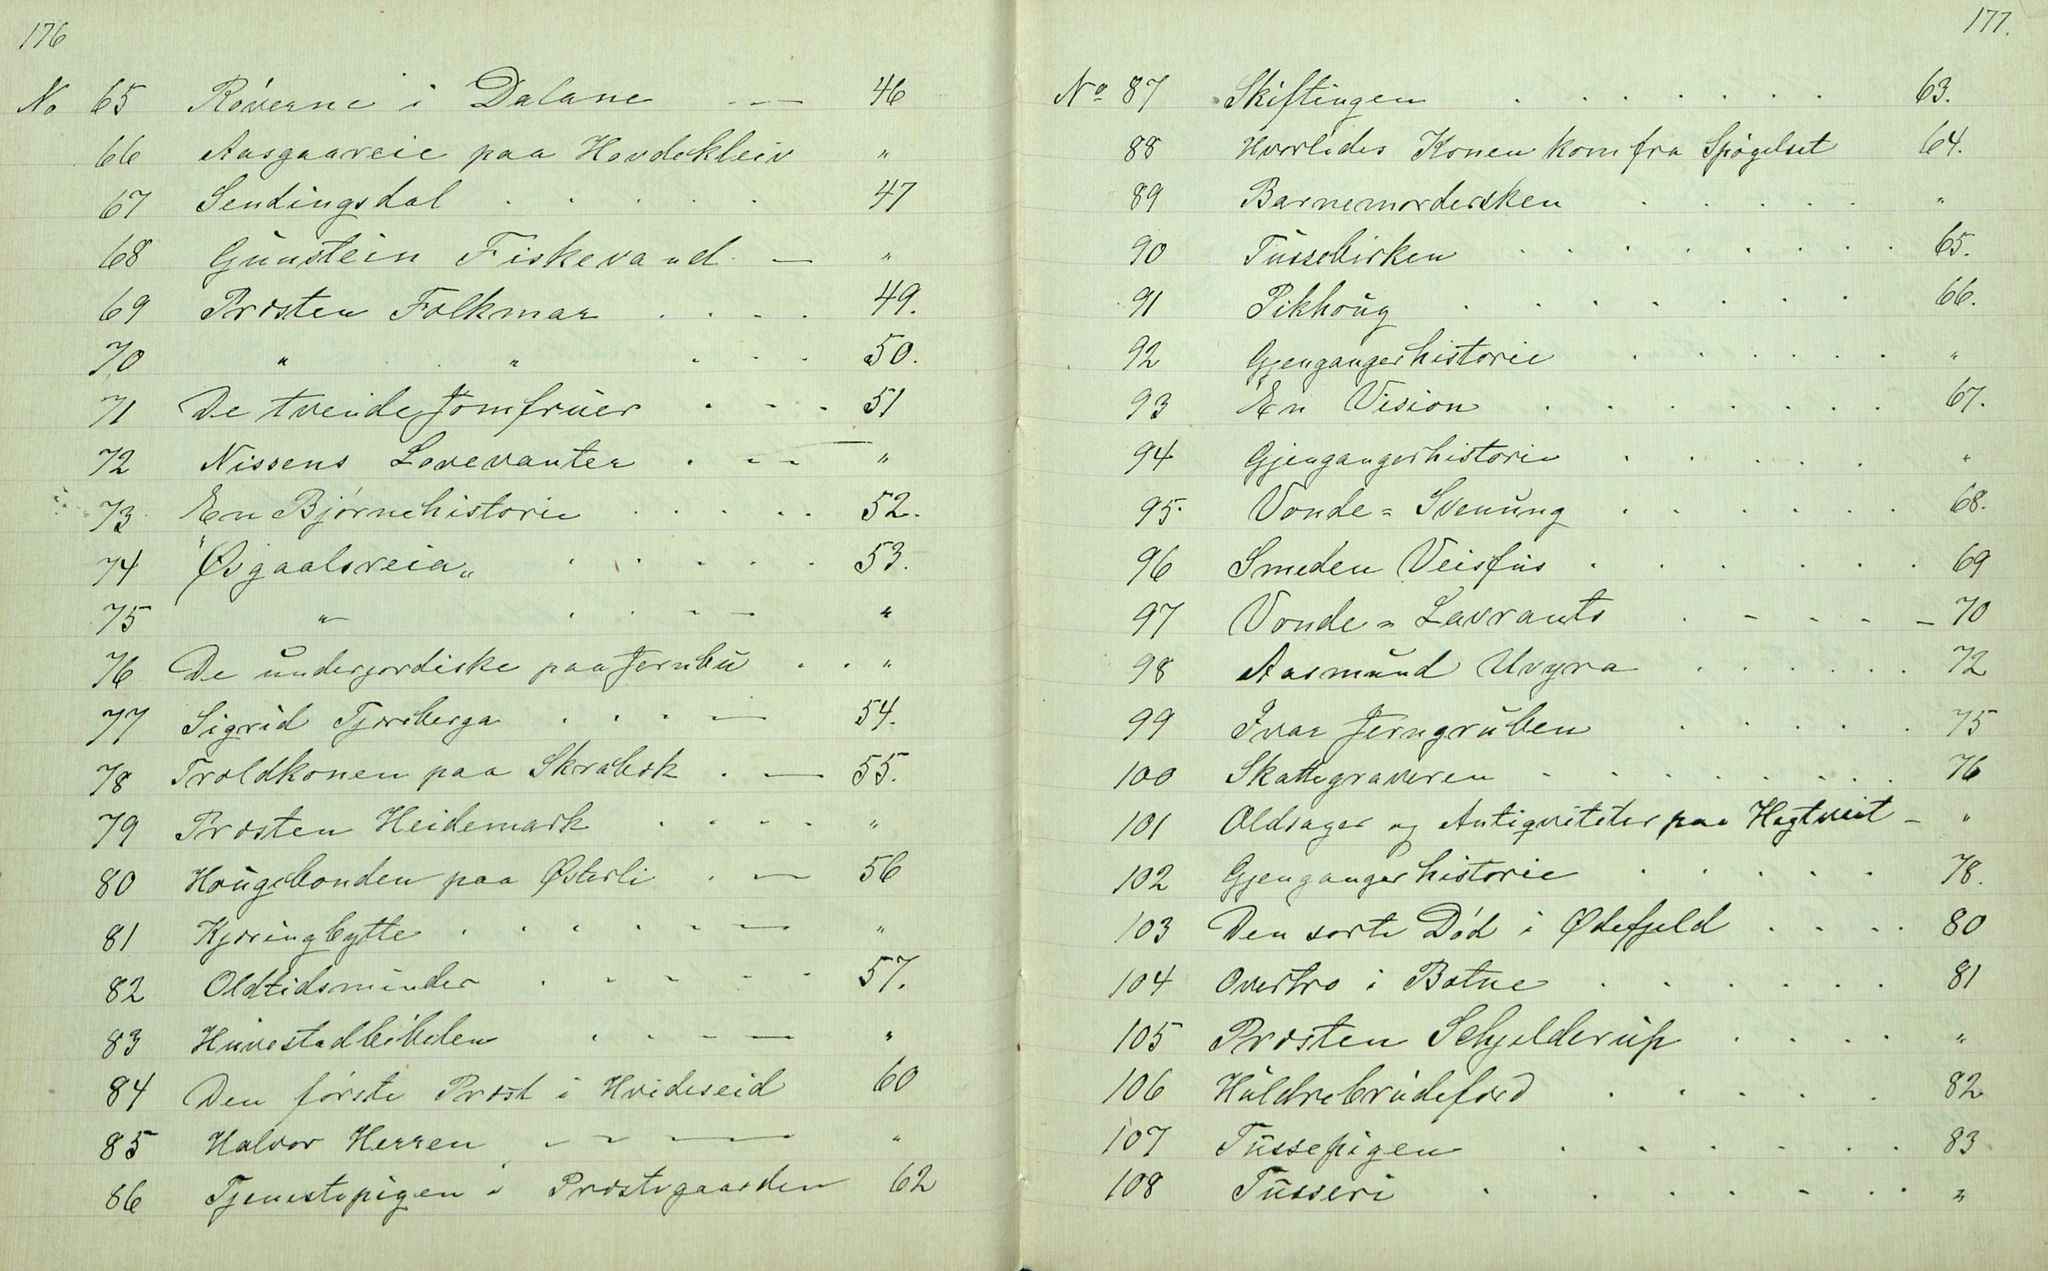 176
No 65 Røverne i Dalane — — 46
66 Aasgaareie paa Hovdekleiv "
67 Sendingsdal . . . . . 47
68 Gunstein Fiskevand. — "
69 Præsten Folkmar . . . . 49.
70 " " . . . 50.
71 De tvende Jomfruer . . . 51
72 Nissens Lovevanter . — — "
73 En Bjørnehistorie . . . . 52.
74 "Øsgaalsreia„ . . . . . 53.
75 " . . . — "
76 De underjordiske paa Jernbu . . "
77 Sigrid Tjorberga . . . — 54.
78 Troldkonen paa Skrabek . — 55.
79 Præsten Heidemark . . . . "
80 Hougebonden paa Østerli . — 56
81 Kjæringbytte . . . . . — "
82 Oldtidsminder . . . . . 57.
83 Huvestadbibelen . . . — "
84 Den første Præst i Hvideseid 60
85 Halvor Herren . . — "
86 Tjenestepigen i Præstegaarden 62
177.
No 87 Skiftingen . . . . . . . 63.
88 Hvorledes Konen kom fra Spøgelset 64.
89 Barnemordersken . . . . . "
90 Tussebirken . . . . . . . . 65.
91 Pikhoug . . . . . . . 66.
92 Gjengangerhistorie . . . . . . "
93 En Vision . . . . . . . 67.
94 Gjengangerhistorie . . . . . "
95. Vonde = Svenung . . . . . . 68.
96 Smeden Veisfus . . . . . . 69
97 Vonde = Lavrants . - - - - 70
98 Aasmund Uvyra . . . . . . 72
99 Ivar Jerngruben . . . . . 75
100 Skattegraveren . . . . . . . . 76
101 Oldsager og Antiqviteter paa Hegtveit - "
102 Gjengangerhistorie . . . . . 78.
103 Den sorte Død i Ødefjeld . . . . 80
104 Overtro i Botne . . . . . . 81
105 Præsten Schjelderup . . . . "
106 Huldrebrudeferd . . . . . 82
107 Tussepigen . . . . . . 83
108 Tusseri . . . . - . . "